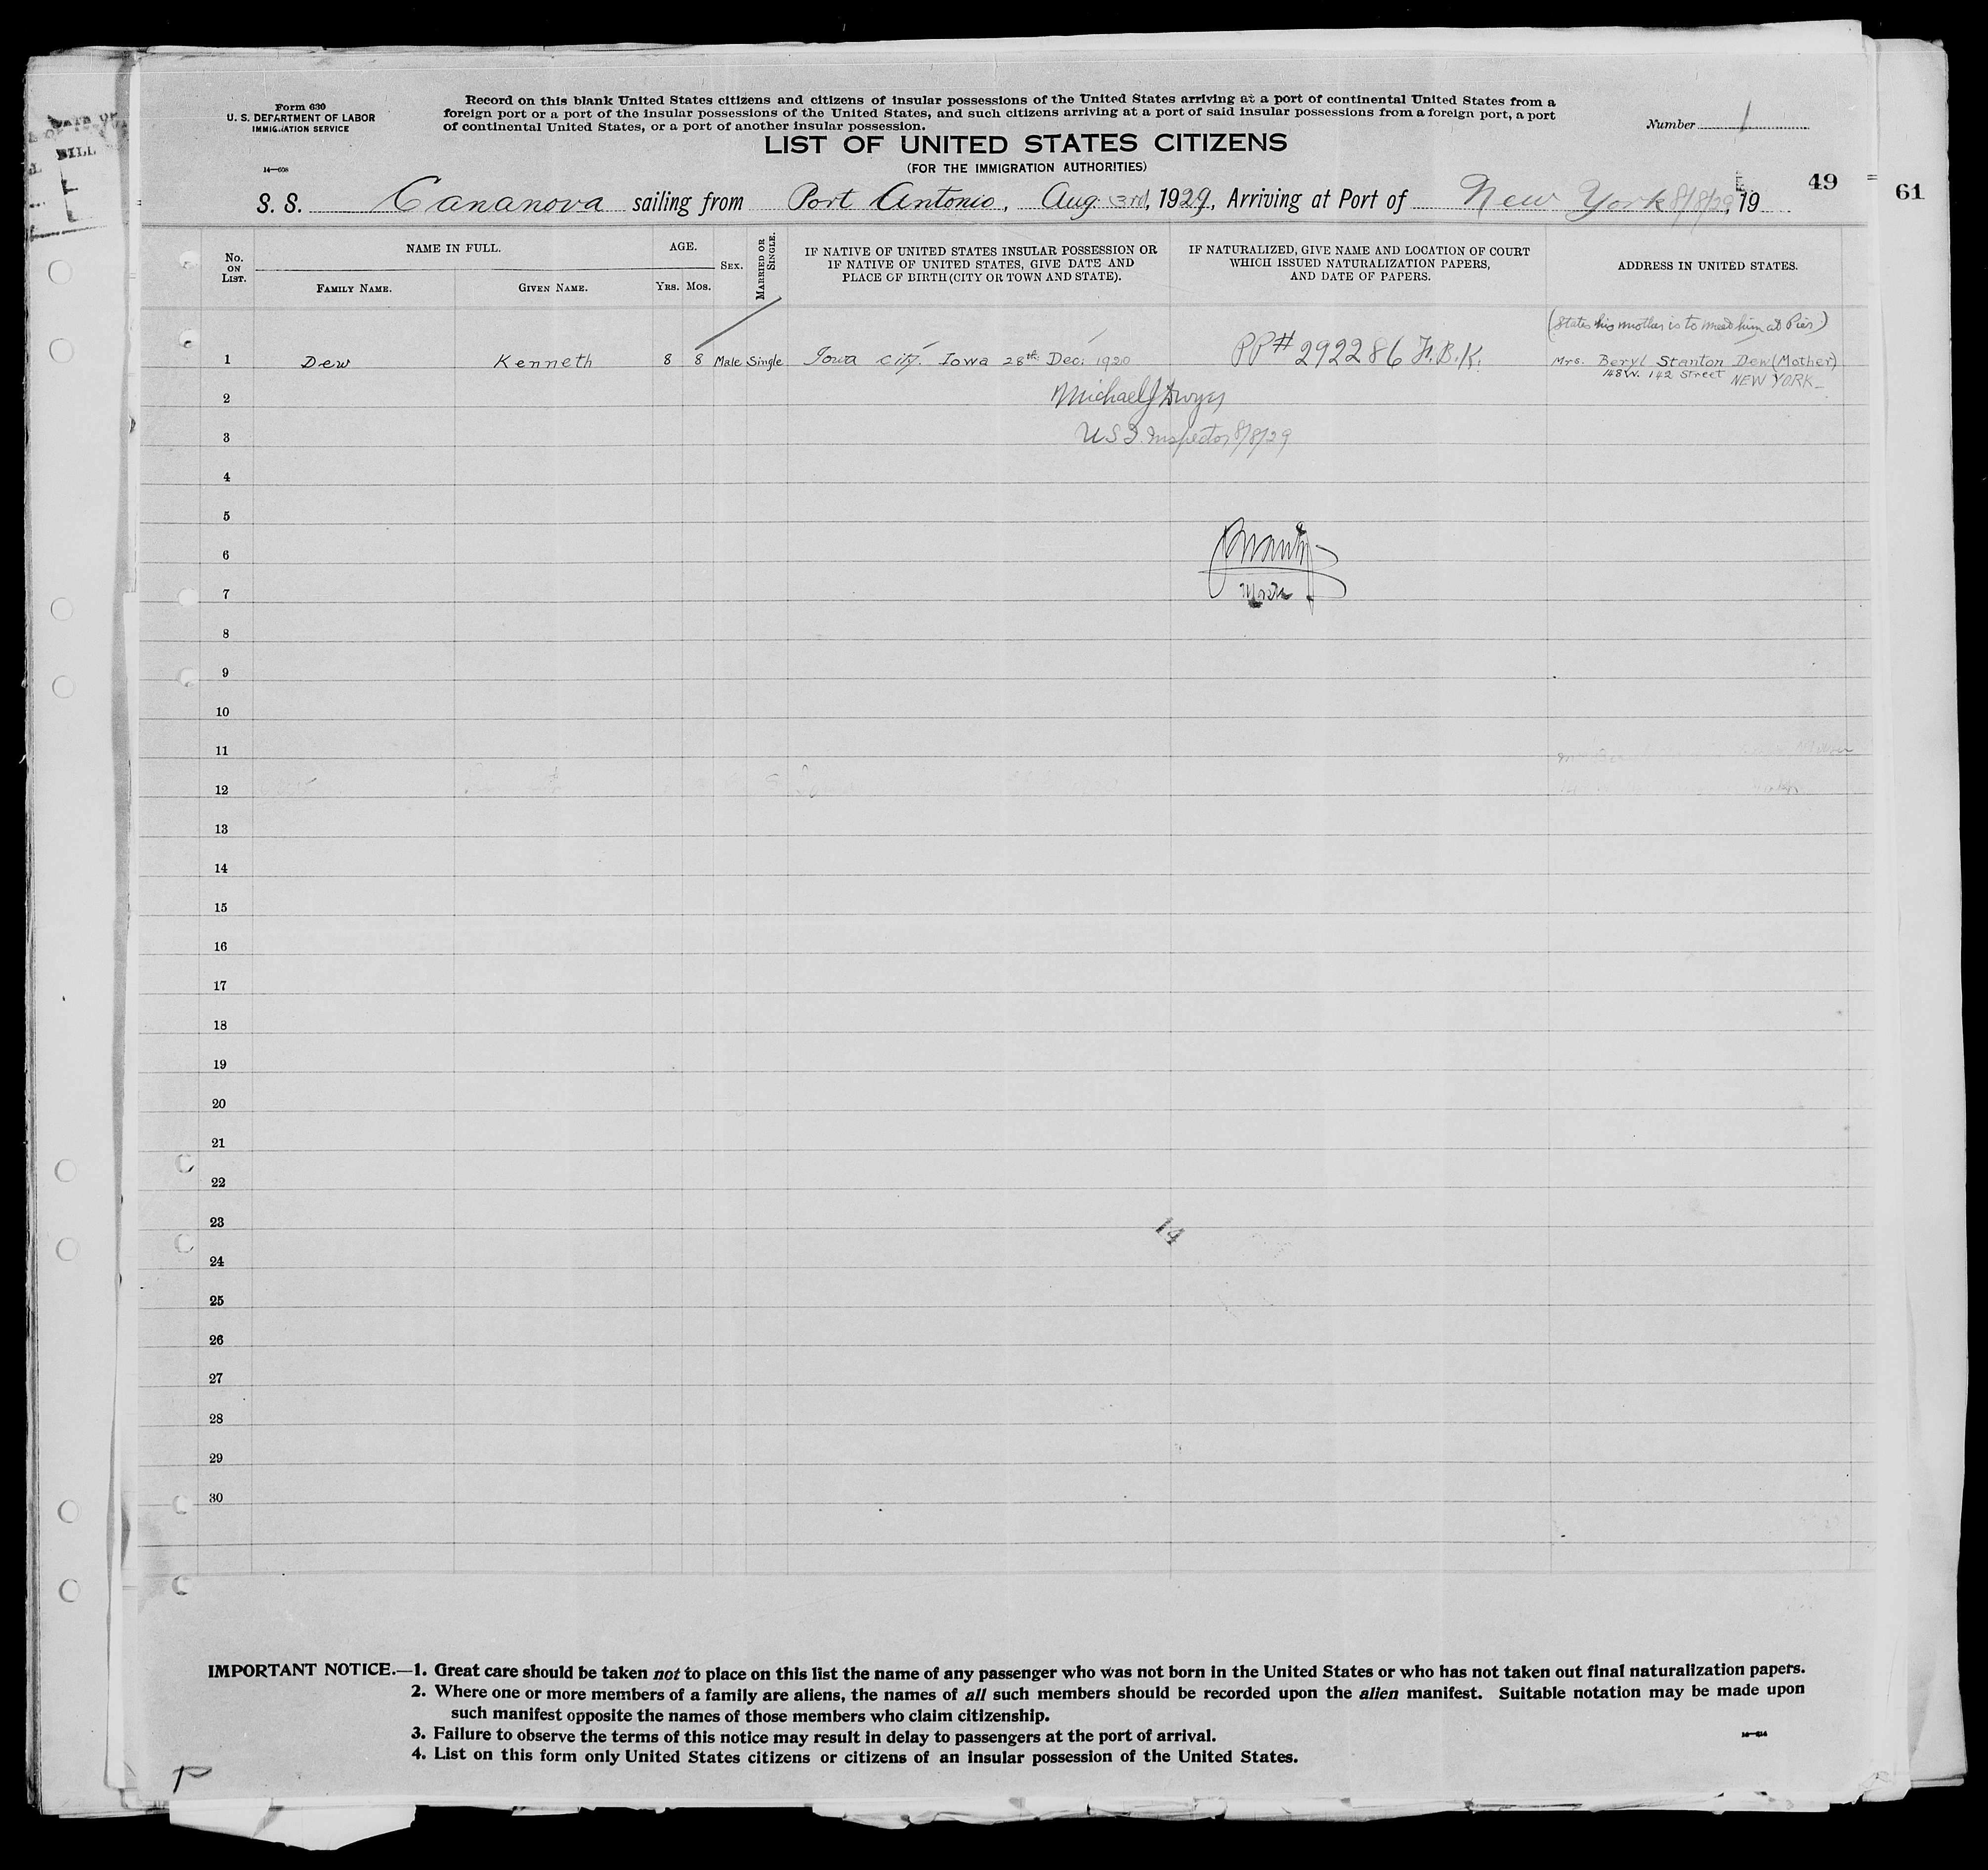 Form 630
U. S. DEPARTMENT OF LABOR
IMMIGRATION SERVICE
14—608
Record on this blank United States citizens and citizens of insular possessions of the United States arriving at a port of continental United States from a
foreign port or a port of the insular possessions of the United States, and such citizens arriving at a port of said insular possessions from a foreign port, a port
of continental United States, or a port of another insular possession.
Number 1
LIST OF UNITED STATES CITIZENS
(FOR THE IMMIGRATION AUTHORITIES)
49
61
S. S. Cananova sailing from Port Antonio, Aug. 3rd, 1929, Arriving at Port of New York 8/8/29, 19
No. ON LIST.
NAME IN FULL.
FAMILY NAME.
GIVEN NAME.
AGE.
YRS. MOS.
SEX.
MARRIED OR SINGLE.
IF NATIVE OF UNITED STATES INSULAR POSSESSION OR
IF NATIVE OF UNITED STATES, GIVE DATE AND
PLACE OF BIRTH (CITY OR TOWN AND STATE).
IF NATURALIZED, GIVE NAME AND LOCATION OF COURT
WHICH ISSUED NATURALIZATION PAPERS,
AND DATE OF PAPERS.
ADDRESS IN UNITED STATES.
(States his mother is to meet him at Pier)
1 Dew Kenneth 8 8 Male Single Iowa City. Iowa 28th Dec. 1920 PP# 292286 F.B.K. Mrs. Beryl Stanton Dew (Mother)
148 W. 142 Street NEW YORK
2 Michael J Dwyer
3 U S I. Inspector 8/8/29
4
5
6
7
8
9
10
11
12
13
14
15
16
17
18
19
20
21
22
23
14
24
25
26
27
28
29
30
IMPORTANT NOTICE.—1. Great care should be taken not to place on this list the name of any passenger who was not born in the United States or who has not taken out final naturalization papers.
2. Where one or more members of a family are aliens, the names of all such members should be recorded upon the alien manifest. Suitable notation may be made upon
such manifest opposite the names of those members who claim citizenship.
3. Failure to observe the terms of this notice may result in delay to passengers at the port of arrival.
4. List on this form only United States citizens or citizens of an insular possession of the United States.
P